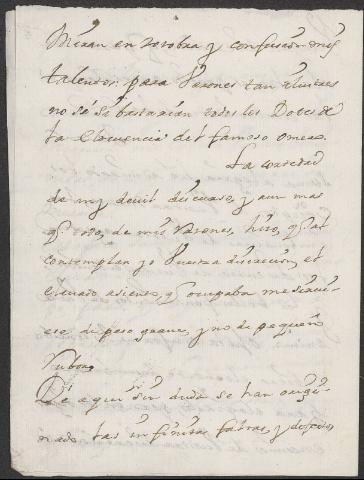 Miran en zozobra y confusion mis
talentos: para Varones tan ilustres
no sé si bastarian todos los Dotes de
la Elocuencia del famoso Omero.
La cortedad
de mi devil discurso, y aun mas
q.e todo, de mis razones, hizo, q.e al
contemplar yo Vuestra discrecion, el
elevado asiento, q.e ocupaba me sirvie-
ese, de peso grave, y no de pequeño
rubor.
De aqui sin duda se han origi-
nado las infinitas faltas, y defectos,